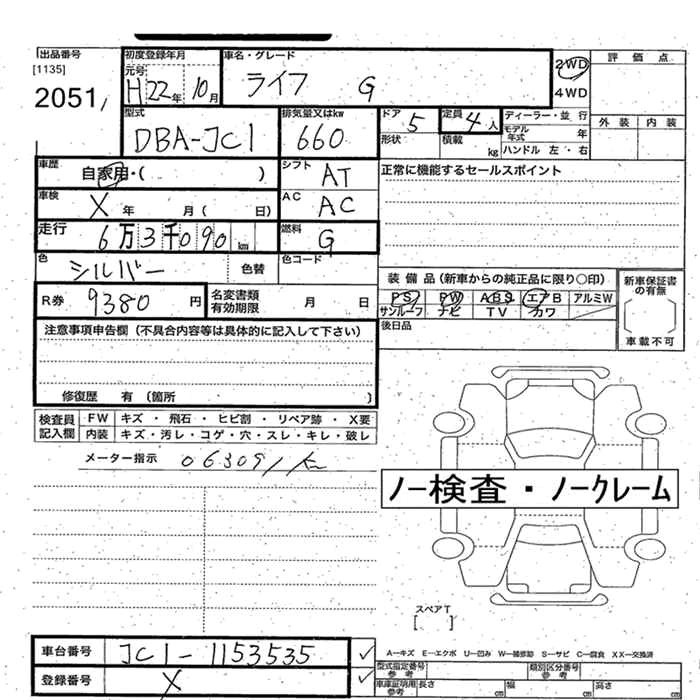 出品番号 初度登録年月 車名・グレード 評価点
[1135] 元号 ライフ G 2WD
2051 H22年 10月 4WD
型式 排気量又はkw ドア 5 定員 4人 ディーラー・並行 外装 内装
DBA-JC1 660 形状 積載 kg モデル年式 年
ハンドル 左・右
車歴 自家用・( ) シフト AT 正常に機能するセールスポイント
車検 X 年 月( 日) AC AC
走行 6万3千090 km 燃料 G
色 シルバー 色替 色コード
装備品(新車からの純正品に限り○印) 新車保証書の有無
R券 9380 円 名変書類有効期限 月 日 PS PW ABS エアB アルミW
サンルーフ ナビ TV カワ
後日品 車載不可
注意事項申告欄(不具合内容等は具体的に記入して下さい)
修復歴 有(箇所 )
検査員記入欄 FW キズ・飛石・ヒビ割・リペア跡・X要
内装 キズ・汚レ・コゲ・穴・スレ・キレ・破レ
メーター指示 063091
ノー検査・ノークレーム
スペアT
[ ]
車台番号 JC1-1153535
A-キズ E-エクボ U-凹み W-補修跡 S-サビ C-腐食 XX-交換済
登録番号 X 型式指定番号 参考 類別区分番号 参考
車庫証明用 参考 長さ cm 幅 cm 高さ cm